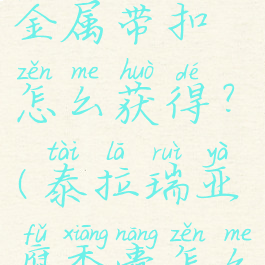 金属带扣
zěn me huò dé
怎么获得？
tài lā ruì yà
（泰拉瑞亚
fǔ xiāng náng zěn me
腐香囊怎么